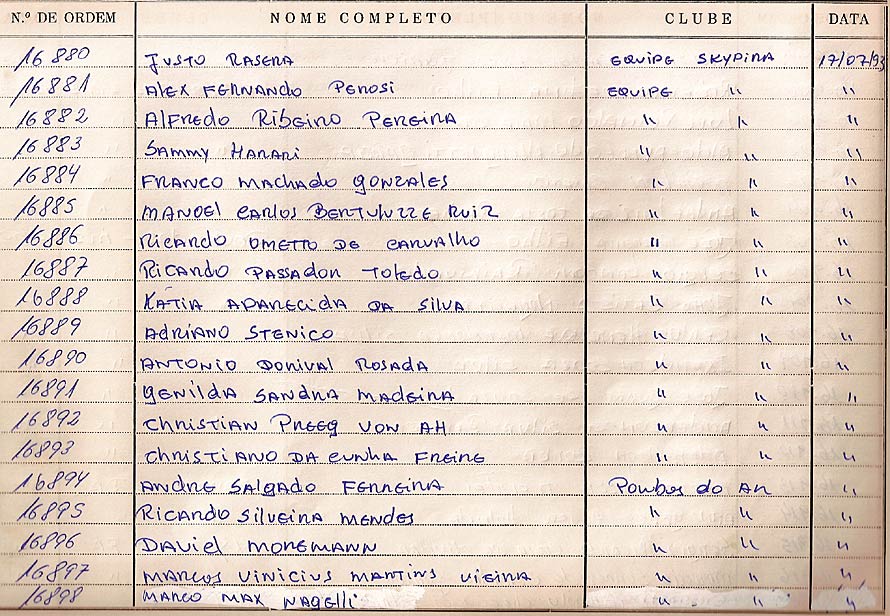 N.º DE ORDEM NOME COMPLETO CLUBE DATA
16880 JUSTO RASERA EQUIPE SKYPIRA 17/07/93
16881 ALEX FERNANDO PEROSI EQUIPE " "
16882 ALFREDO RIBEIRO PEREIRA " " "
16883 SAMMY HARARI " " "
16884 FRANCO MACHADO GONZALES " " "
16885 MANOEL CARLOS BERTULUZZE RUIZ " " "
16886 RICARDO OMETTO DE CARVALHO " " "
16887 RICARDO PASSADOR TOLEDO " " "
16888 KÁTIA APARECIDA DA SILVA " " "
16889 ADRIANO STENICO " " "
16890 ANTONIO DORIVAL ROSADA " " "
16891 GENILDA SANDRA MADEIRA " " "
16892 CHRISTIAN PREEG VON AH " " "
16893 CHRISTIANO DA CUNHA FREIRE " " "
16894 ANDRE SALGADO FERREIRA Pombos do Ar "
16895 RICARDO SILVEIRA MENDES " " "
16896 DAVIEL MOREMANN " " "
16897 MARCOS VINICIUS MARTINS VIEIRA " " "
16898 MARCO MAX NAGELLI " " "